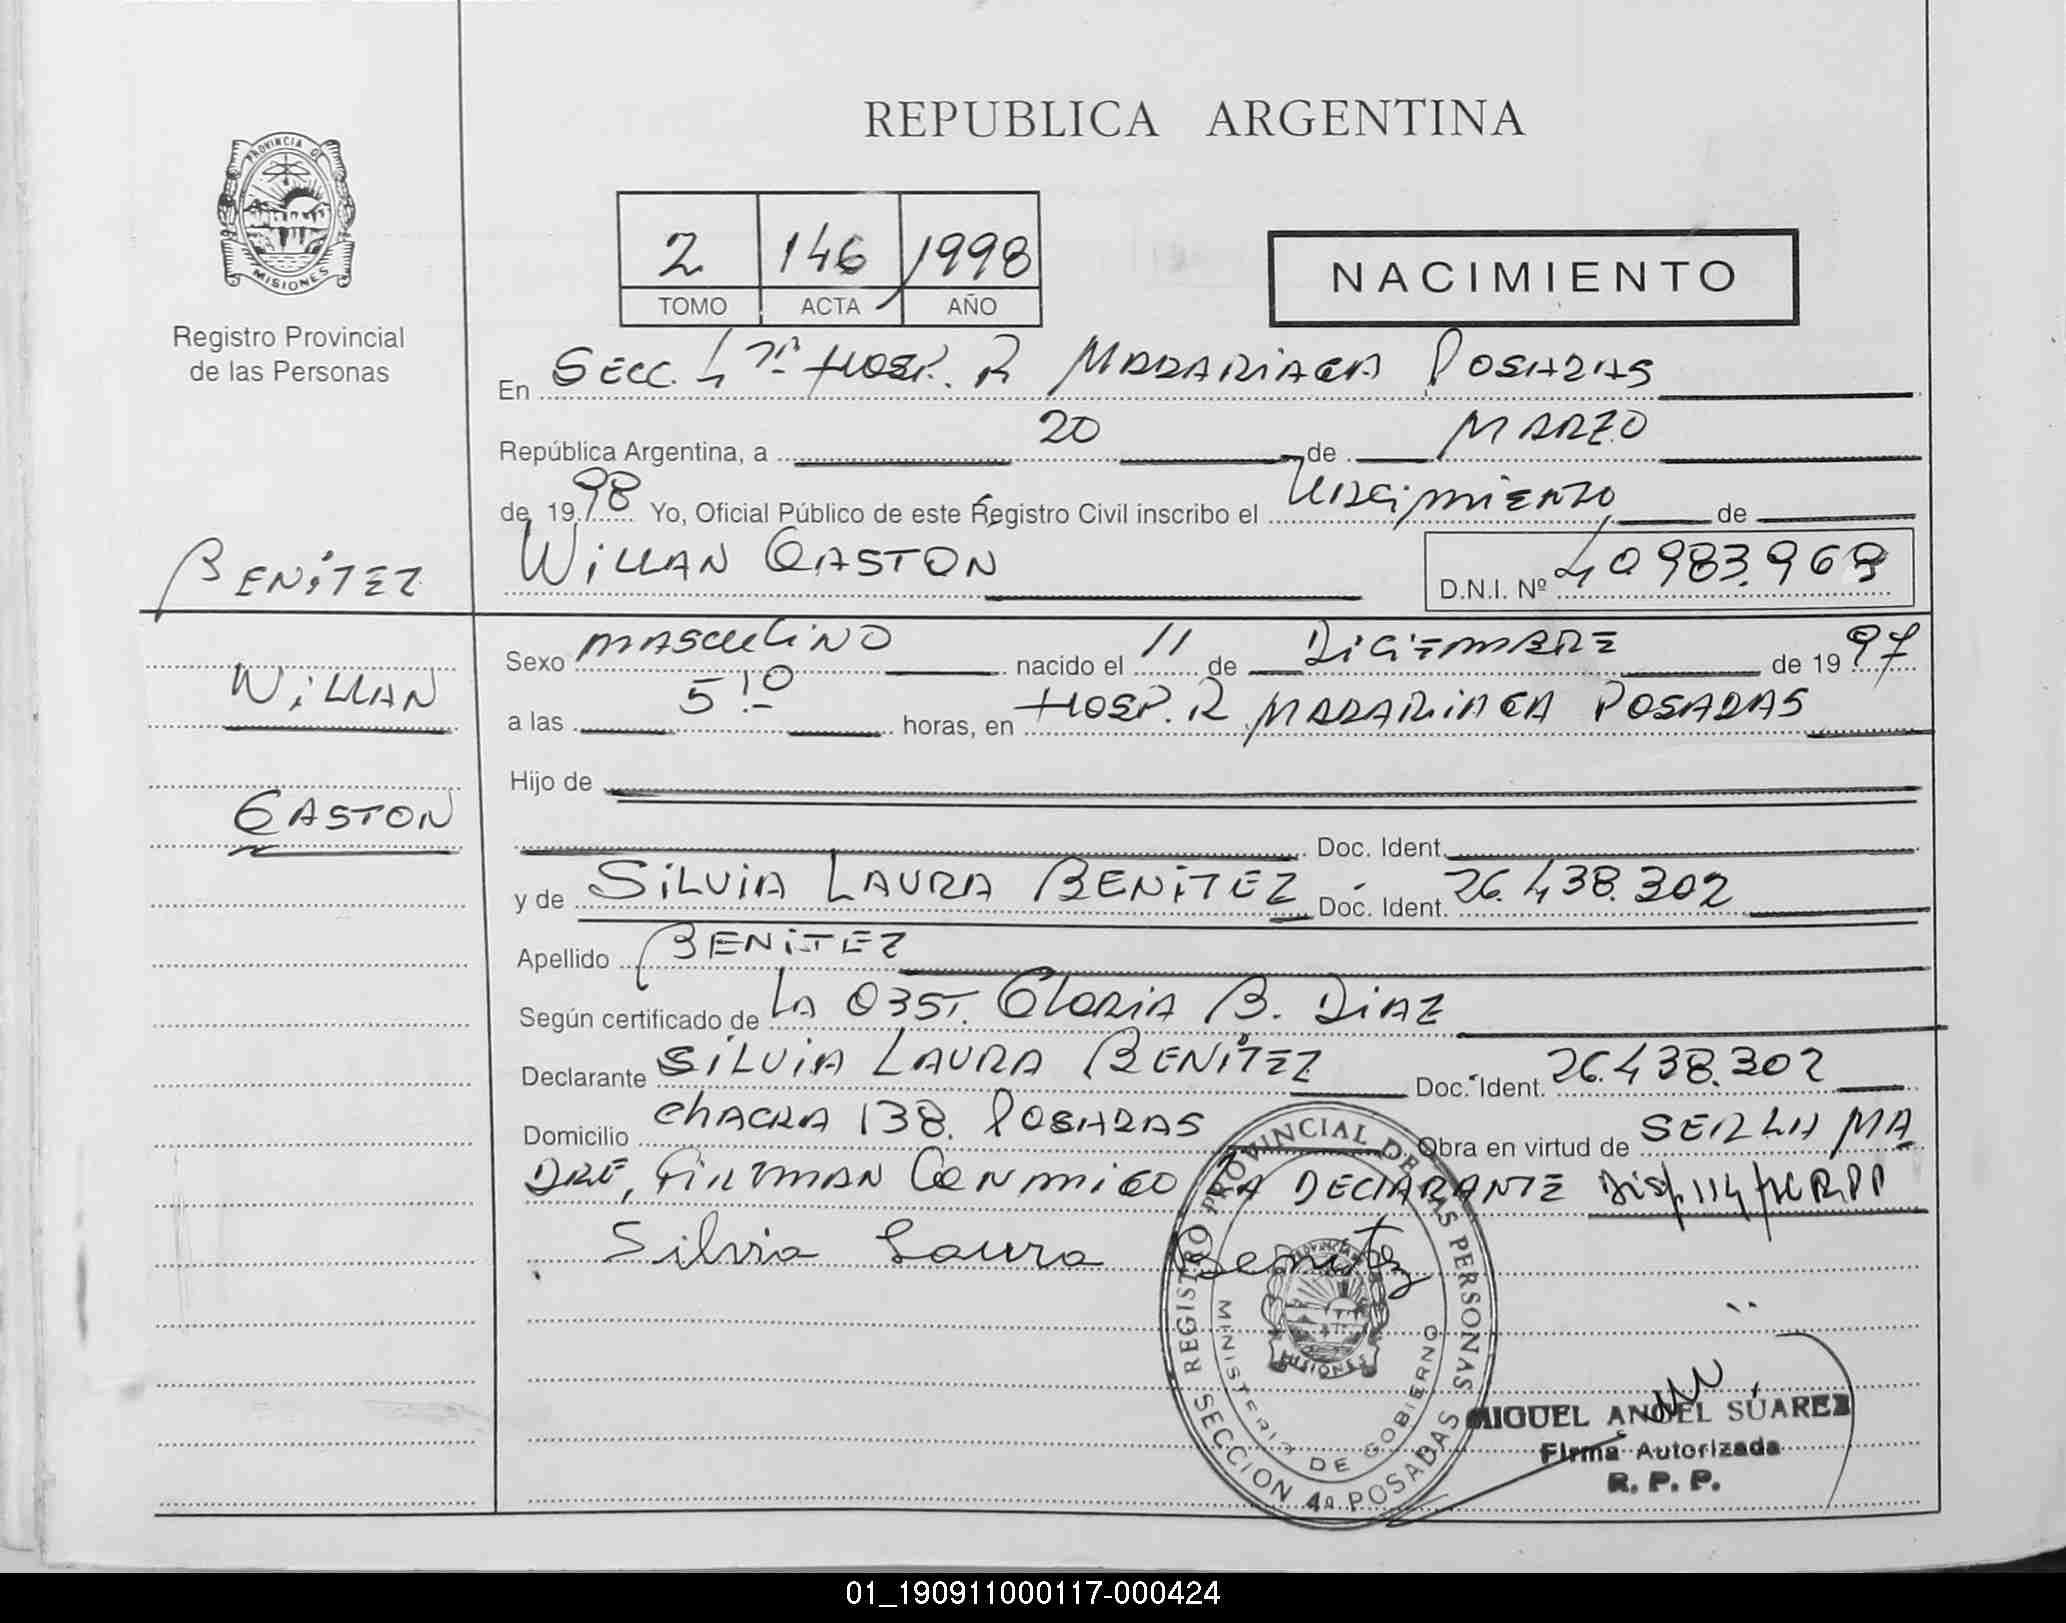 REPUBLICA ARGENTINA
PROVINCIA DE
MISIONES
Registro Provincial
de las Personas
2 146 1998
TOMO ACTA AÑO
NACIMIENTO
En SECC. 4ª HOSP. R MADARIAGA POSADAS
República Argentina, a 20 de MARZO
de 1998 Yo, Oficial Público de este Registro Civil inscribo el NACIMIENTO de
WILLAN GASTON D.N.I. Nº 40983.969
BENÍTEZ
WILLAN
GASTON
Sexo MASCULINO nacido el 11 de DICIEMBRE de 1997
a las 5:10 horas, en HOSP. R MADARIAGA POSADAS
Hijo de
Doc. Ident.
y de SILVIA LAURA BENÍTEZ Doc. Ident. 26.438.302
Apellido BENÍTEZ
Según certificado de LA OBST. GLORIA B. DIAZ
Declarante SILVIA LAURA BENÍTEZ Doc. Ident. 26.438.302
Domicilio CHACRA 138. POSADAS Obra en virtud de SER LA MA
DRE, FIRMAN CONMIGO LA DECLARANTE
Silvia Laura Benítez
REGISTRO PROVINCIAL DE LAS PERSONAS
MINISTERIO DE GOBIERNO
MISIONES
SECCION 4ª POSADAS
MIGUEL ANGEL SÚAREZ
Firma Autorizada
R. P. P.
01_190911000117-000424